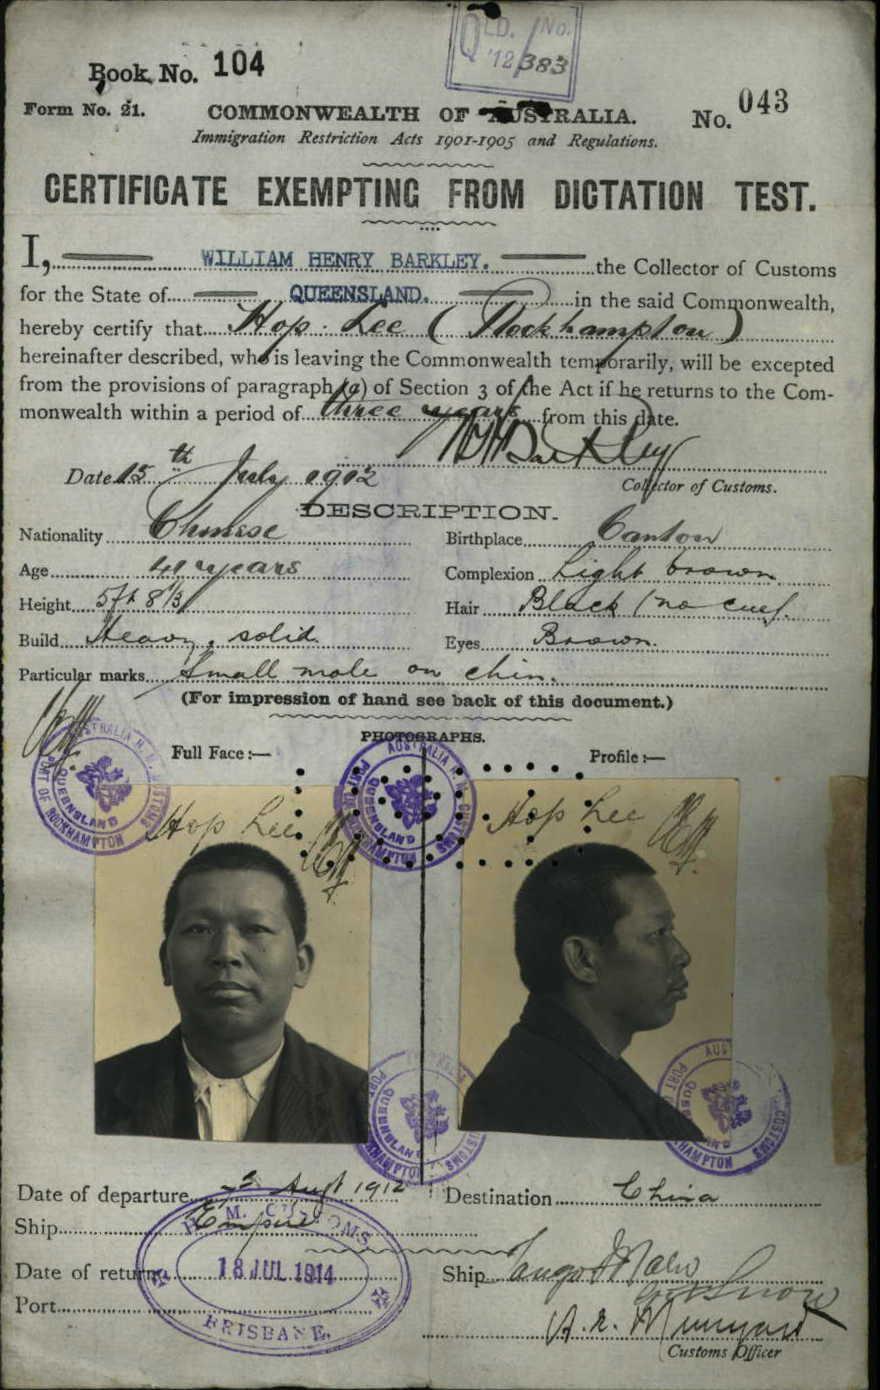 QLD. No.
'12/383
Book No. 104
Form No. 21.
COMMONWEALTH OF AUSTRALIA.
No. 043
Immigration Restriction Acts 1901-1905 and Regulations.
CERTIFICATE EXEMPTING FROM DICTATION TEST.
I, WILLIAM HENRY BARKLEY. the Collector of Customs
for the State of QUEENSLAND. in the said Commonwealth,
hereby certify that Hop Lee (Rockhampton)
hereinafter described, who is leaving the Commonwealth temporarily, will be excepted
from the provisions of paragraph (a) of Section 3 of the Act if he returns to the Com-
monwealth within a period of three years from this date.
WHBarkley
Date 15th July 1912
Collector of Customs.
DESCRIPTION.
Nationality Chinese
Birthplace Canton
Age 41 years
Complexion Light brown
Height 5ft 8 1/3
Hair Black (no cue).
Build Heavy, solid.
Eyes Brown.
Particular marks Small mole on chin.
(For impression of hand see back of this document.)
PHOTOGRAPHS.
Full Face:—
Profile:—
AUSTRALIA H.M. CUSTOMS
QUEENSLAND
PORT OF ROCKHAMPTON
Hop Lee
Hop Lee
Date of departure Augt 1912
Destination China
Ship Empire
H. M. CUSTOMS
Date of return 18 JUL 1914
Ship
Port
BRISBANE.
Customs Officer